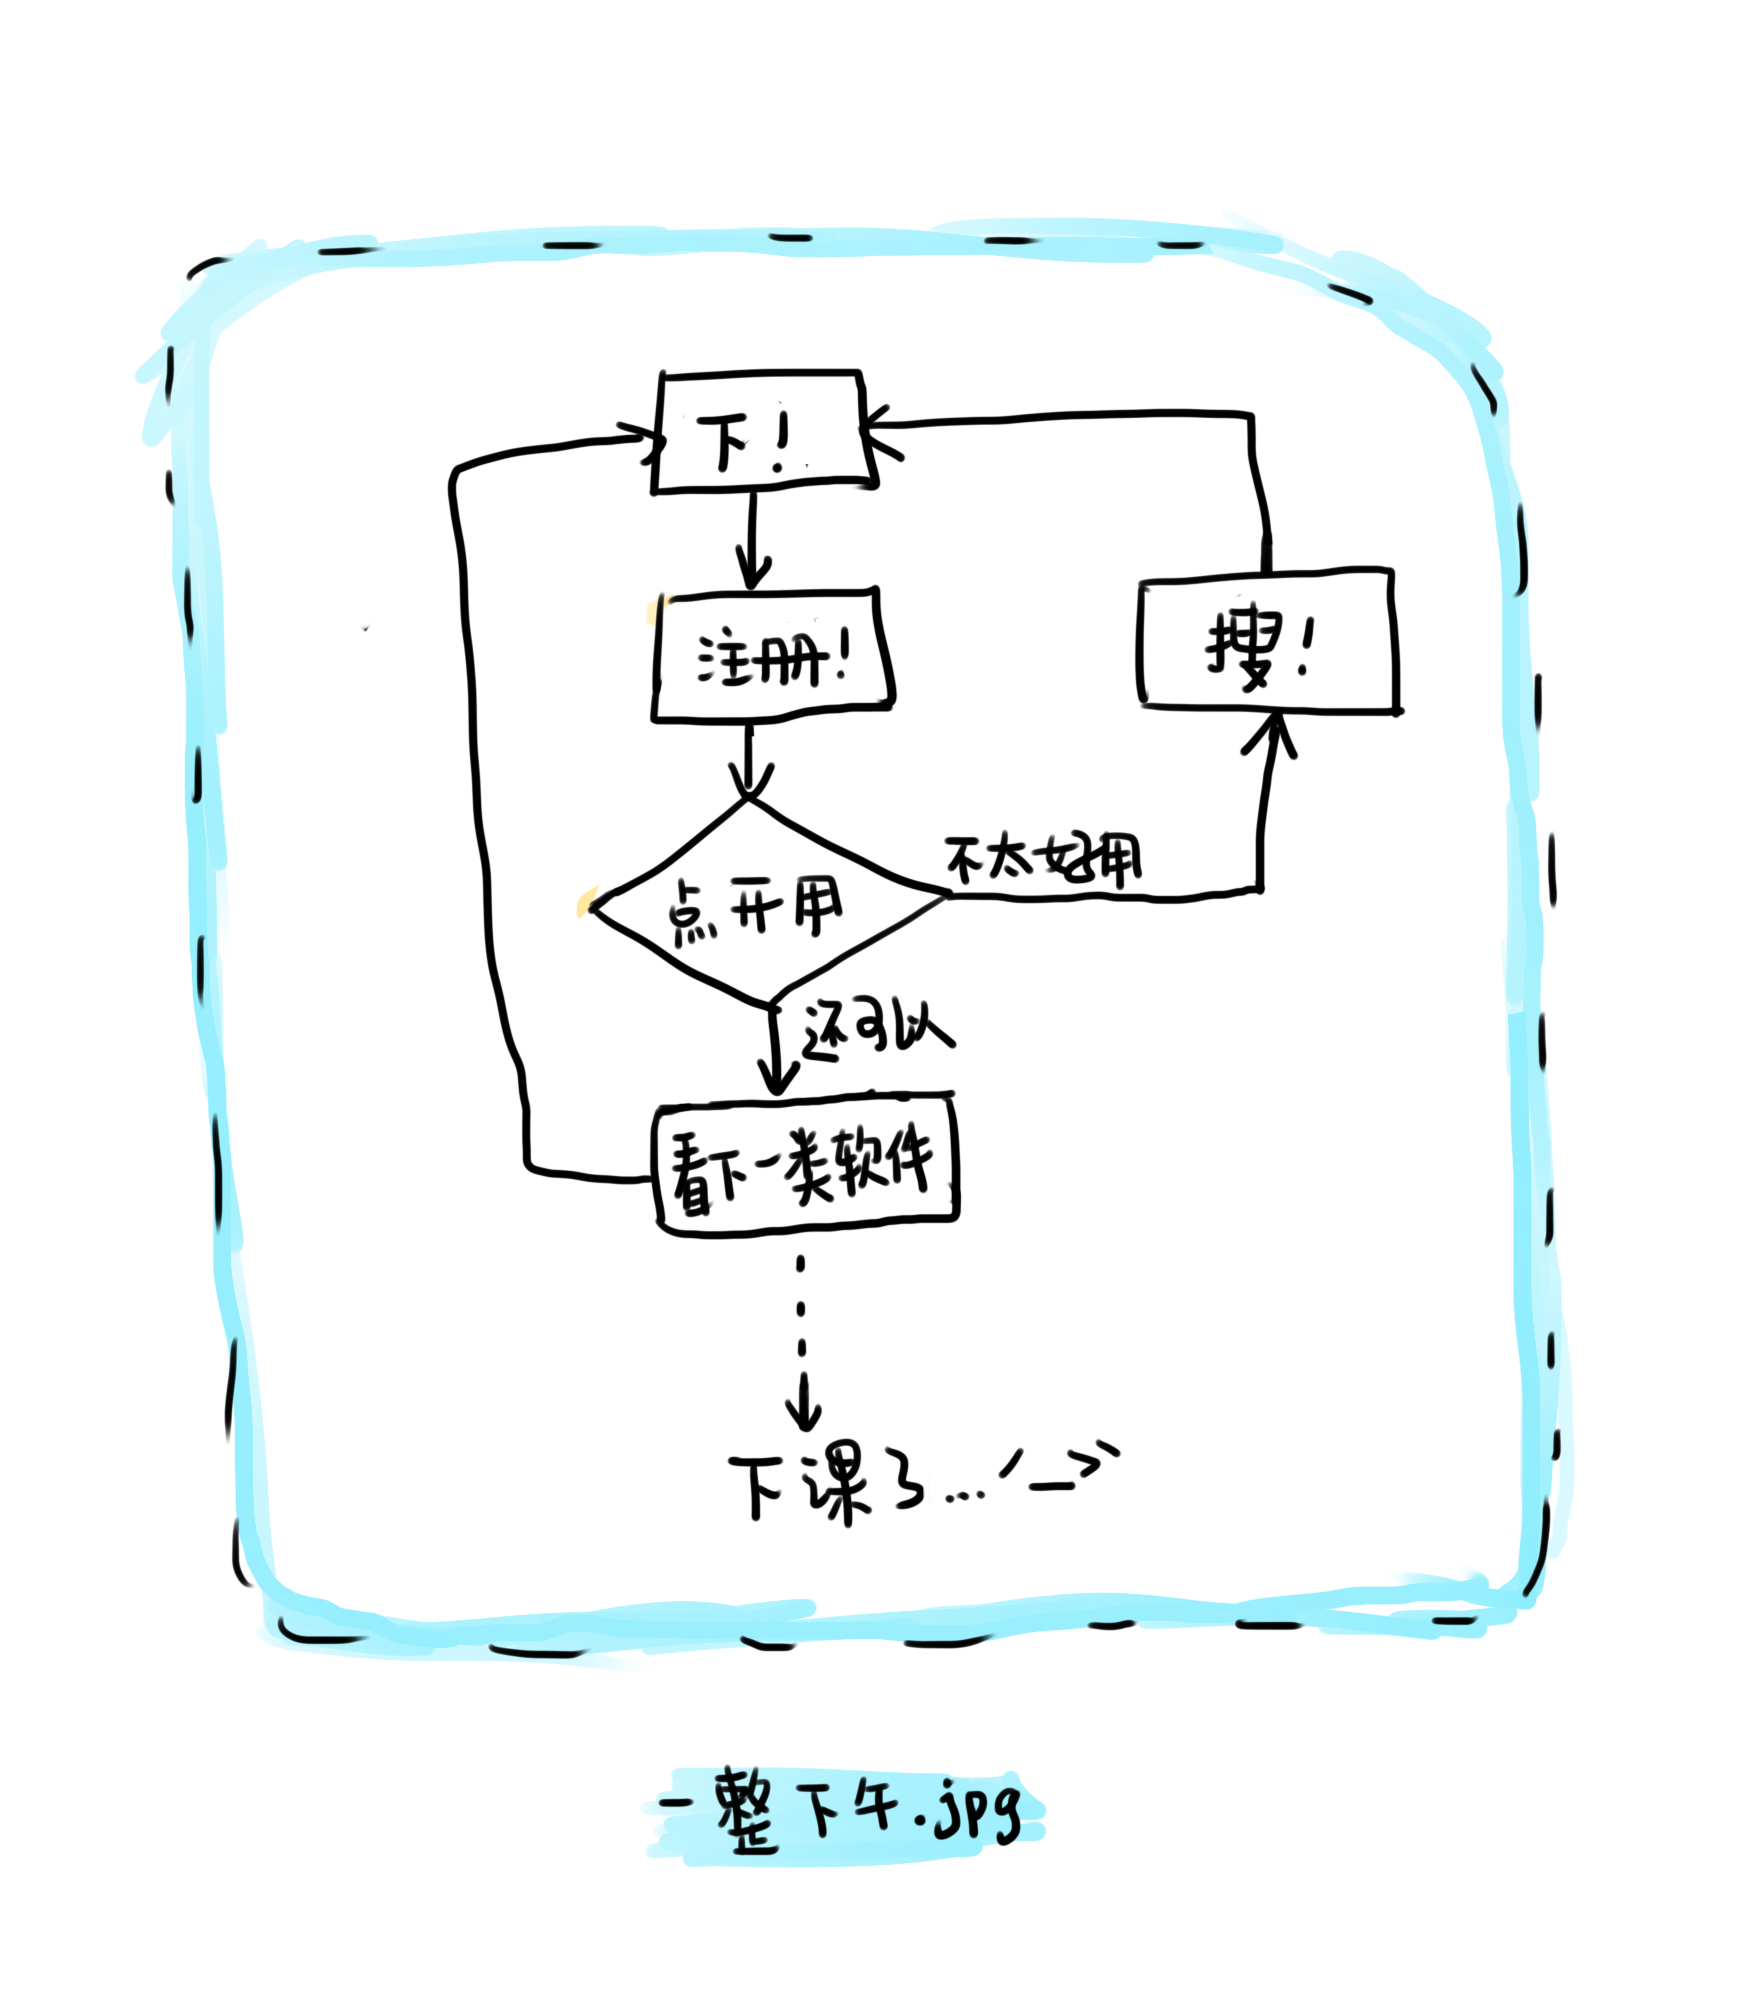 下！
注册！
搜！
不太好用
点开用
还可以
看下一类软件
下课了...
一整下午.jpg